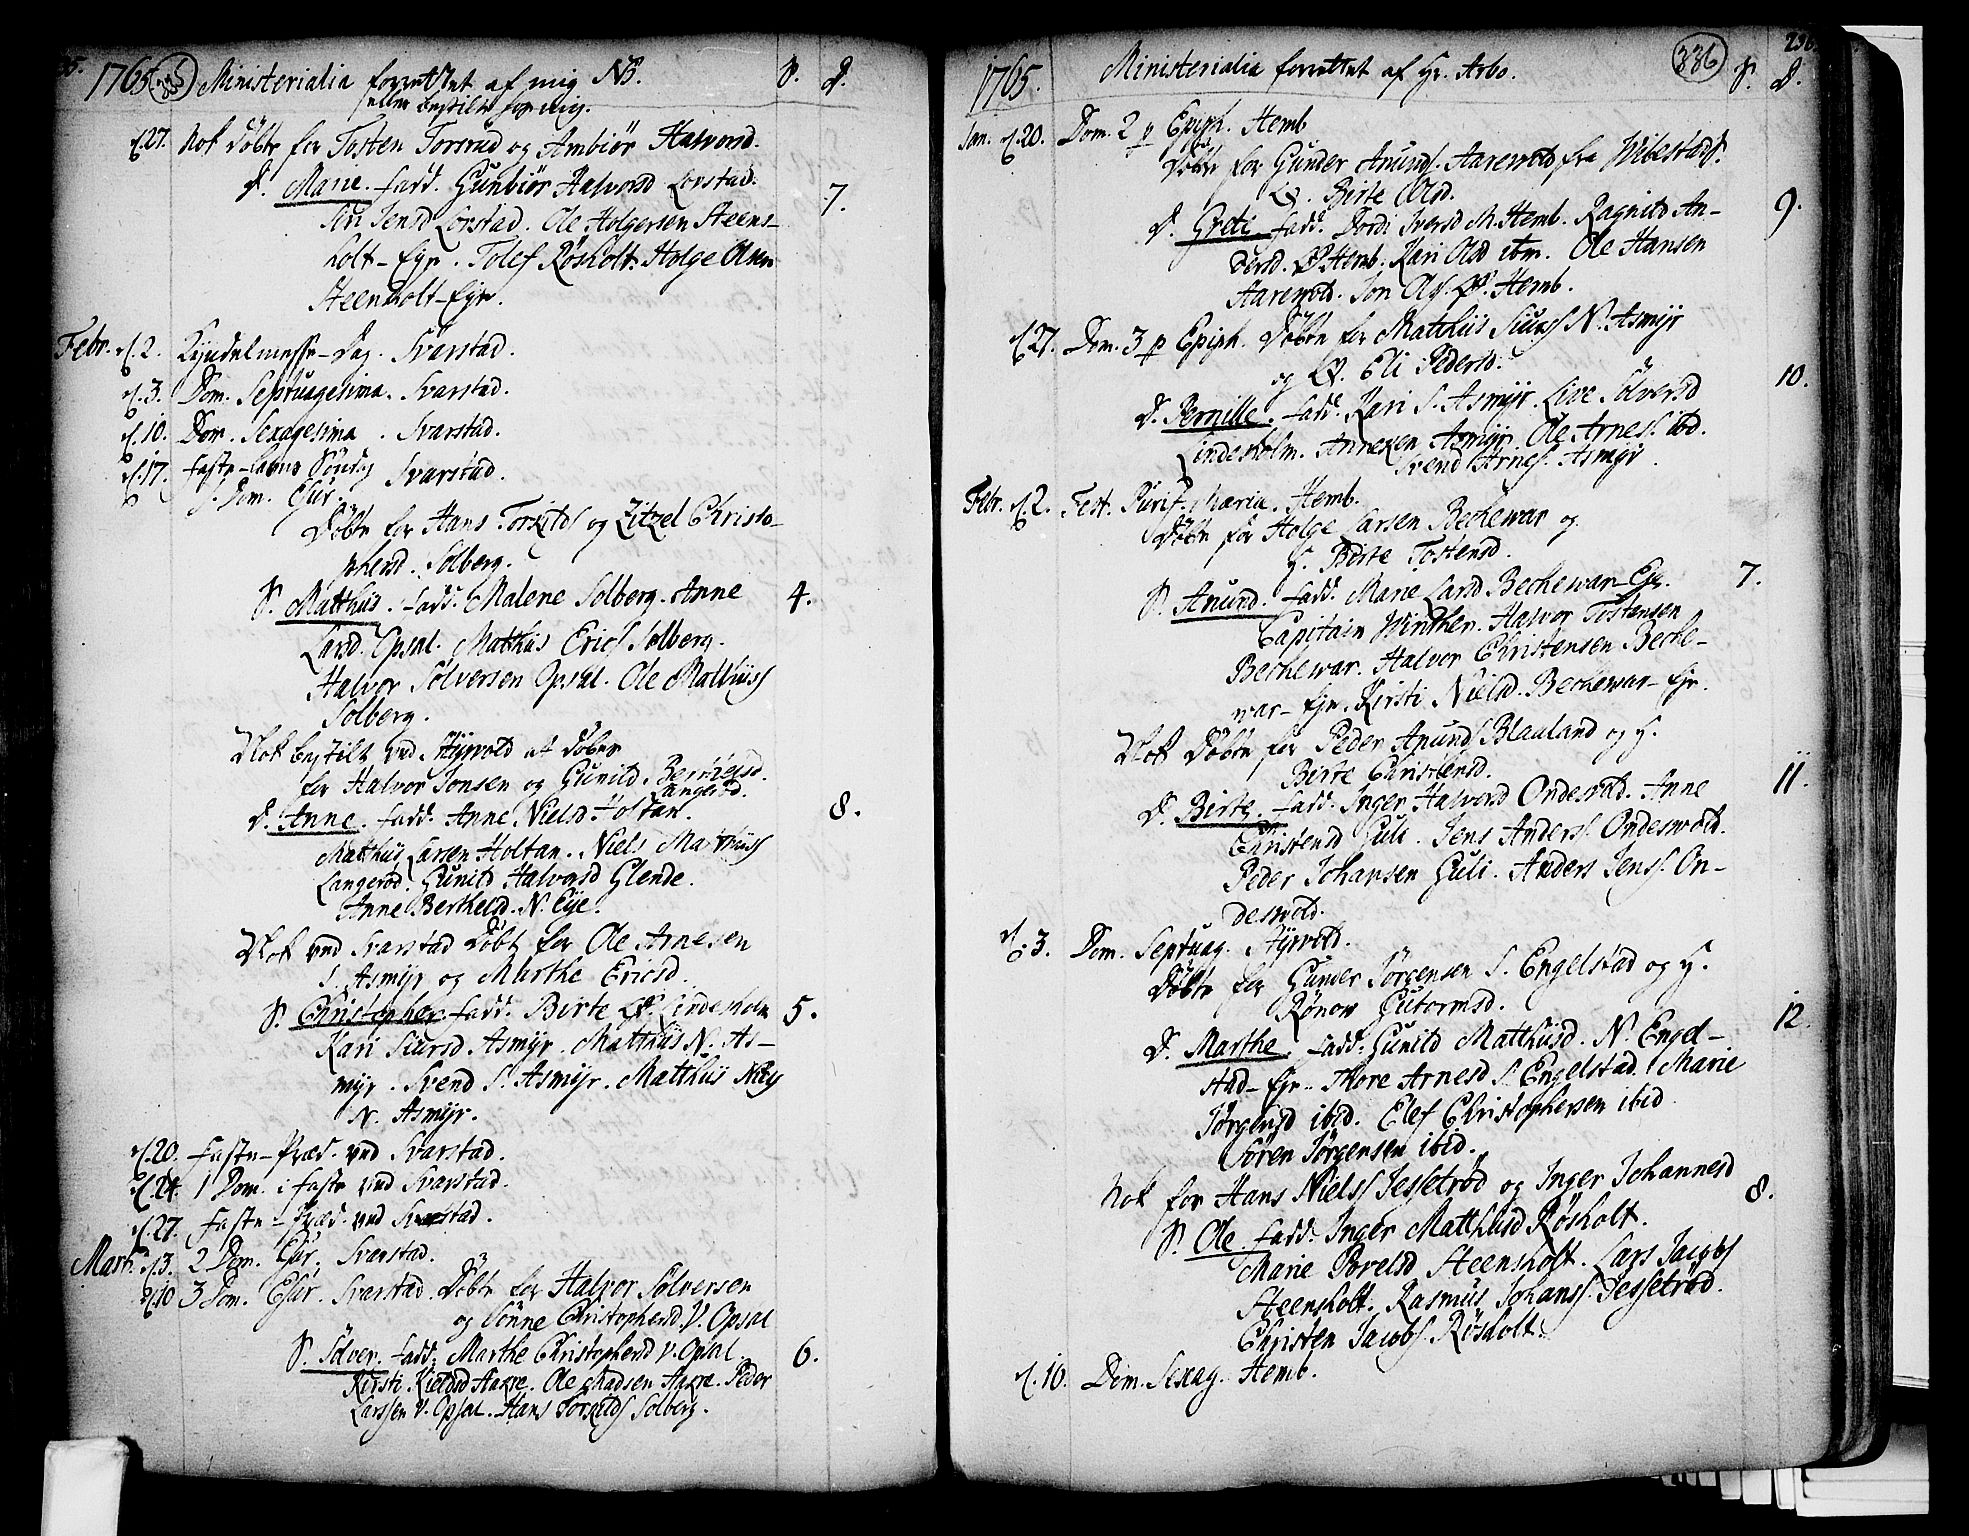 1765 335 Ministerialia forrettet af mig NB. S. D.
eller bestilt for mig.
d. 27. Nok døbte for Tosten Torsrud og Ambiør Halvorsd.
D. Marie. Fadd. Gunbiør Halvorsd Lorstad. 7.
Siri Jensd Lorstad. Ole Holgersen Steens-
holt-Eje. Tolef Røsholt. Holge Olsen
Steensholt-Eje.
Febr. d. 2. Kyndelmesse-Dag. Svarstad.
d. 3. Dom. Septuagesima. Svarstad.
d. 10. Dom. Sexagesima. Svarstad.
d. 17. Faste-Lavns Søndag Svarstad.
Dom. Esto
Døbte for Hans Torkilds og Zitzel Christo-
phersd. Solberg.
S. Matthiis. Fadd. Malene Solberg. Anne 4.
Larsd. Opsal. Matthiis Erics Solberg.
Halvor Sølversen Opsal. Ole Mathiiss
Solberg.
Nok bestilt ved Hyrvold at døbes
for Halvor Jonsen og Gunild Berthelsd.
Langerød.
D. Anne. Fadd. Anne Nielsd Holtan. 8.
Matthiis Larsen Holtan. Niels Mathiiss
Langerød. Gunild Halvorsd Glende.
Anne Berthelsd. N. Eye.
Nok ved Svarstad døbt for Ole Arnesen
S. Asmyr og Marthe Ericsd.
S. Christopher Fadd. Birte Lindesholm 5.
Kari Siursd. Asmyr. Matthiis N. As-
myr. Svend S. Asmyr. Matthiis Niels
N. Asmyr.
d. 20. Faste-Præd. ved Svarstad.
d. 24. 1 Dom. i Faste ved Svarstad.
d. 27. Faste-Præd. ved Svarstad.
Mart. d. 3. 2 Dom. Svarstad.
d. 10 3 Dom. Svarstad. Døbte for Halvor Sølversen
og Sønne Christophersd. V. Opsal
S. Sølver. Fadd. Marthe Christophersd V. Opsal. 6.
Kirsti Kieldsd Aakre. Ole Madsen Aakre. Peder
Larssen V. Opsal. Hans Torkilds Solberg.
1765. Ministerialia forrettet af Hr. Arbo. 336 236. S. D.
Jan. d. 20. Dom. 2 p Epiph. Hemb
Døbte for Gunder Anunds. Aarevold fra Wibestads.
Q. Birte Olsd.
D. Greti. Fadd. Dordi Iversd M. Hemb. Ragnild An- 9.
dersd. Hemb. Kari Olsd ibm. Ole Hansen
Aarevold. Jon Ols. Hemb.
d. 27. Dom. 3 p Epiph. Døbte for Matthiis Siurs N. Asmyr
og Q. Eli Pedersd.
D. Pernille. Fadd. Kari S. Asmyr. Live Sølversd 10.
Lindesholm. Asmyr. Ole Arnes. ibd.
Svend Arnes. Asmyr.
Febr. d. 2. Fest. Purif. Maria. Hemb.
Døbte for Holge Larsen Bechewar og
H. Birte Tostensd.
S. Anund. Fadd. Marie Larsd Bechewar-Eje. 7.
Capitain Winther. Halvor Tostensen
Bechewar. Halvor Christensen Beche-
war-Eje. Kirsti Nielsd. Bechewar-Eje.
Nok døbte for Peder Anunds Blauland og H.
Birte Christensd.
D. Birte. Fadd. Inger Halvorsd Ondesvold. Anne 11.
Christensd Guli. Jens Anders. Ondesvold.
Peder Johansen Guli. Anders Jens. On-
desvold.
d. 3. Dom. Septuag. Hyrvold.
Døbte for Gunder Jørgensen S. Engelstad og H.
Rønow Gutormsd.
D. Marthe. Fadd. Gunild Matthiisd. N. Engel- 12.
stad-Eje. Thore Arnesd S. Engelstad. Marie
Jørgensd ibid. Elef Christophersen ibid
Søren Jørgensen ibid.
Nok for Hans Niels Jessetrød og Inger Johannesd
S. Ole. Fadd. Inger Matthiisd Røsholt. 8.
Marie Povelsd Steensholt. Lars Jacobs
Steensholt. Rasmus Johans. Jessetrød.
Christen Jacobs. Røsholt.
d. 10. Dom. Sexag. Hemb.